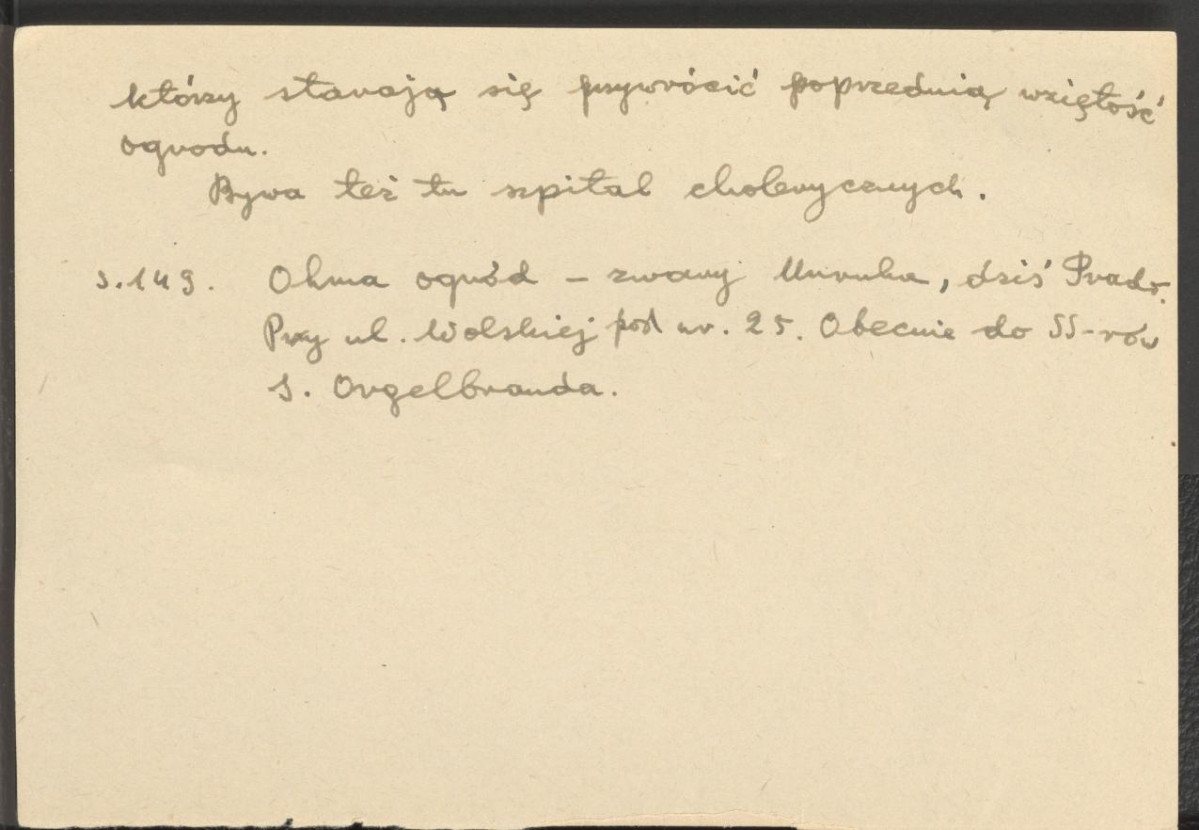 którzy starają się przywrócić poprzednią wziętość
ogrodu.
Bywa też tu szpital cholerycznych.
s.149. Ohma ogród – zwany Unruha, dziś Prado.
Przy ul. Wolskiej pod nr. 25. Obecnie do SS-rów
S. Orgelbranda.